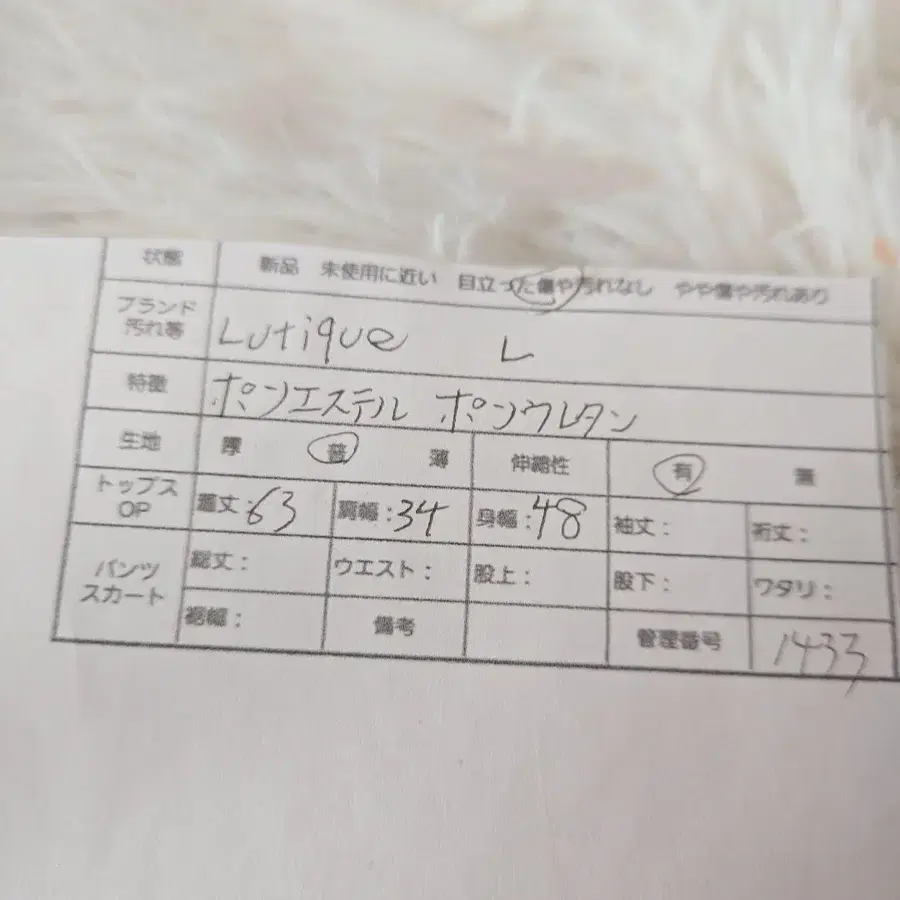 状態 新品 未使用に近い 目立った傷や汚れなし やや傷や汚れあり
ブランド
汚れ等 Lutique L
特徴 ポンエステル ポンウレタン
生地 厚 普 薄 伸縮性 有 無
トップス
OP 着丈:63 肩幅:34 身幅:48 袖丈: 裄丈:
パンツ
スカート 総丈: ウエスト: 股上: 股下: ワタリ:
裾幅: 備考 管理番号 1433